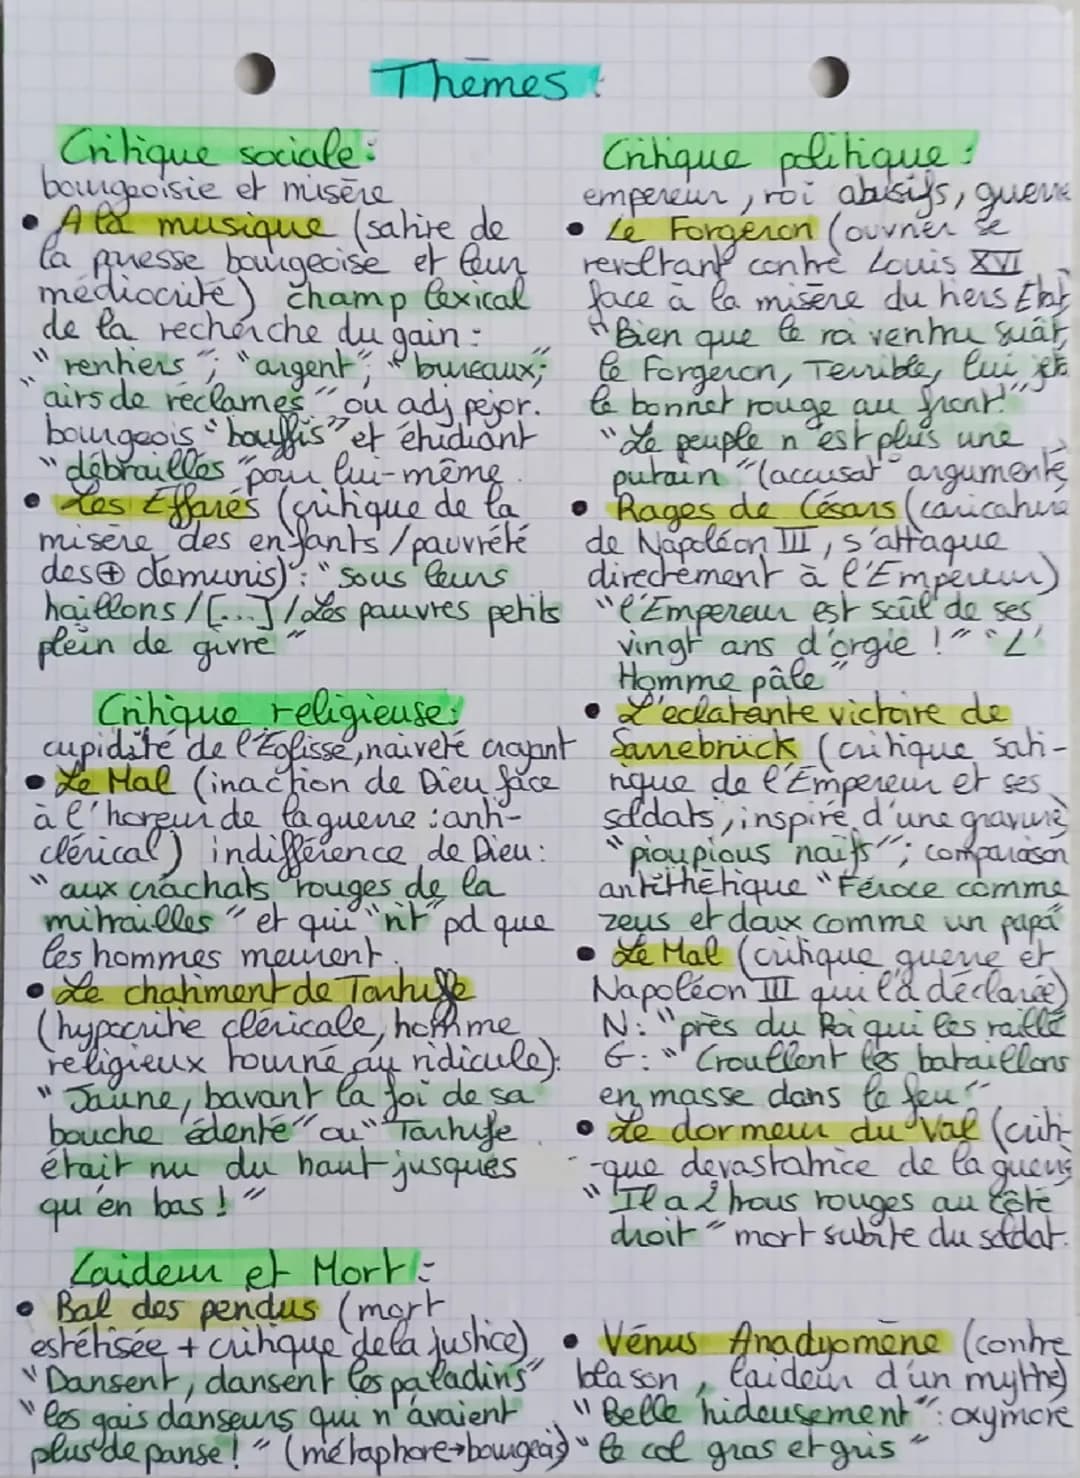 Thèmes :
Critique sociale :
bourgeoisie et misère
• A la musique (satire de
la presse bourgeoise et leur
médiocrité) champ lexical
de la recherche du gain :
"rentiers" ; "argent" ; "bureaux ;
"airs de réclames" ou adj pejor.
bourgeois "bouffis" et étudiant
"débraillés" pour lui-même.
• Les Effarés (critique de la
misère des enfants / pauvreté
des ⊕ démunis) : "sous leurs
haillons / [...] / Les pauvres petits
plein de givre"
Critique religieuse :
cupidité de l'Eglisse, naiveté croyant
• Le Mal (inaction de Dieu face
à l'horeur de la guerre : anti-
clérical) indifférence de Dieu :
"aux crachats rouges de la
mitrailles" et qui "rit" pd que
les hommes meurent.
• Le chatiment de Tartuffe
(hypocrite cléricale, homme
religieux tourné au ridicule) :
"Jaune, bavant la foi de sa
bouche édenté" ou "Tartufe
était nu du haut jusques
qu'en bas !"
Laideur et Mort :
• Bal des pendus (mort
estétisée + critique de la justice)
"Dansent, dansent les paladins"
"les gais danseurs qui n'avaient
plus de panse !" (métaphore→bourgeois)
Critique politique :
empereur, roi abusifs, guerre
• Le Forgeron (ouvrier se
revoltant contre Louis XVI
face à la misère du tiers Etat
"Bien que le roi ventru suât,
le Forgeron, Terrible, lui jeta
le bonnet rouge au front !"
"Le peuple n'est plus une
putain" (accusat° argumenté
• Rages de Césars (caricature
de Napoléon III, s'attaque
directement à l'Empereur)
"l'Empereur est soûl de ses
vingt ans d'orgie !" "L'
Homme pâle"
• L'eclatante victoire de
Sarrebrück (critique sati-
rique de l'Empereur et ses
soldats, inspiré d'une gravure
"pioupious naïfs" ; comparaison
antithétique "Féroce comme
zeus et doux comme un papa"
• Le Mal (critique guerre et
Napoléon III qui l'a déclarée)
N : "près du Roi qui les raille
G : "Croullent les bataillons
en masse dans le feu"
• Le dormeur du Val (criti-
-que devastatrice de la guerre
"Il a 2 trous rouges au côté
droit" mort subite du soldat.
• Vénus Anadyomène (contre
blason, laideur d'un mythe)
"Belle hideusement" : oxymore
"le col gras et gris"